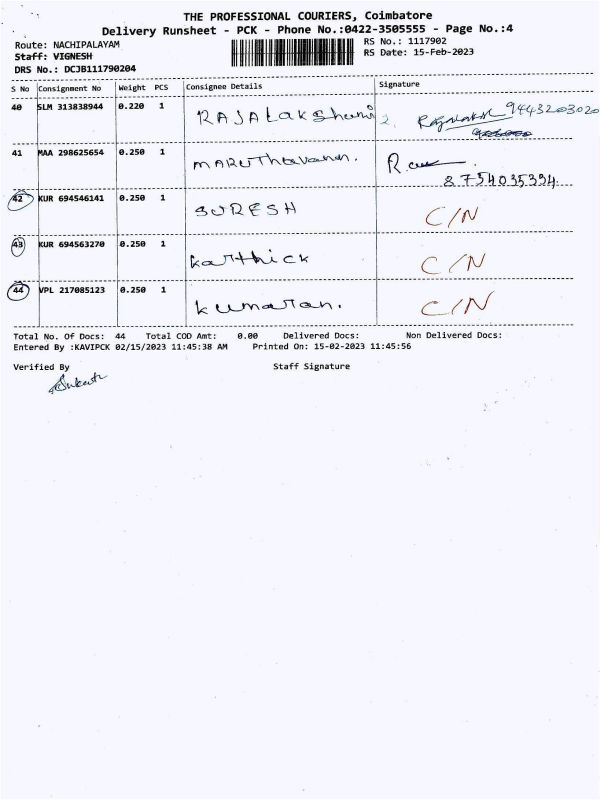 THE PROFESSIONAL COURIERS, Coimbatore
Delivery Runsheet - PCK - Phone No.:0422-3505555 - Page No.:4
Route: NACHIPALAYAM
RS No.: 1117902
Staff: VIGNESH
RS Date: 15-Feb-2023
DRS No.: DCJB111790204
S No Consignment No Weight PCS Consignee Details Signature
40 SLM 313838944 0.220 1 RAJALakshmi 2. 9443203020
41 MAA 298625654 0.250 1 MARUThavanan.
8754035394
42 KUR 694546141 0.250 1 SURESH C/N
43 KUR 694563270 0.250 1 Karthick C/N
44 VPL 217085123 0.250 1 Kumaran. C/N
Total No. Of Docs: 44 Total COD Amt: 0.00 Delivered Docs: Non Delivered Docs:
Entered By :KAVIPCK 02/15/2023 11:45:38 AM Printed On: 15-02-2023 11:45:56
Verified By Staff Signature